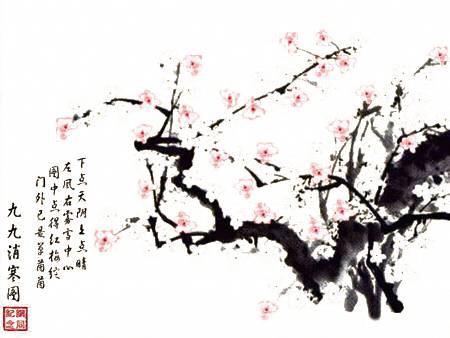 下点天阴上点晴
左風右雾雪中心
圖中点得红梅绽
门外已是草茵茵
九九消寒图
紀念